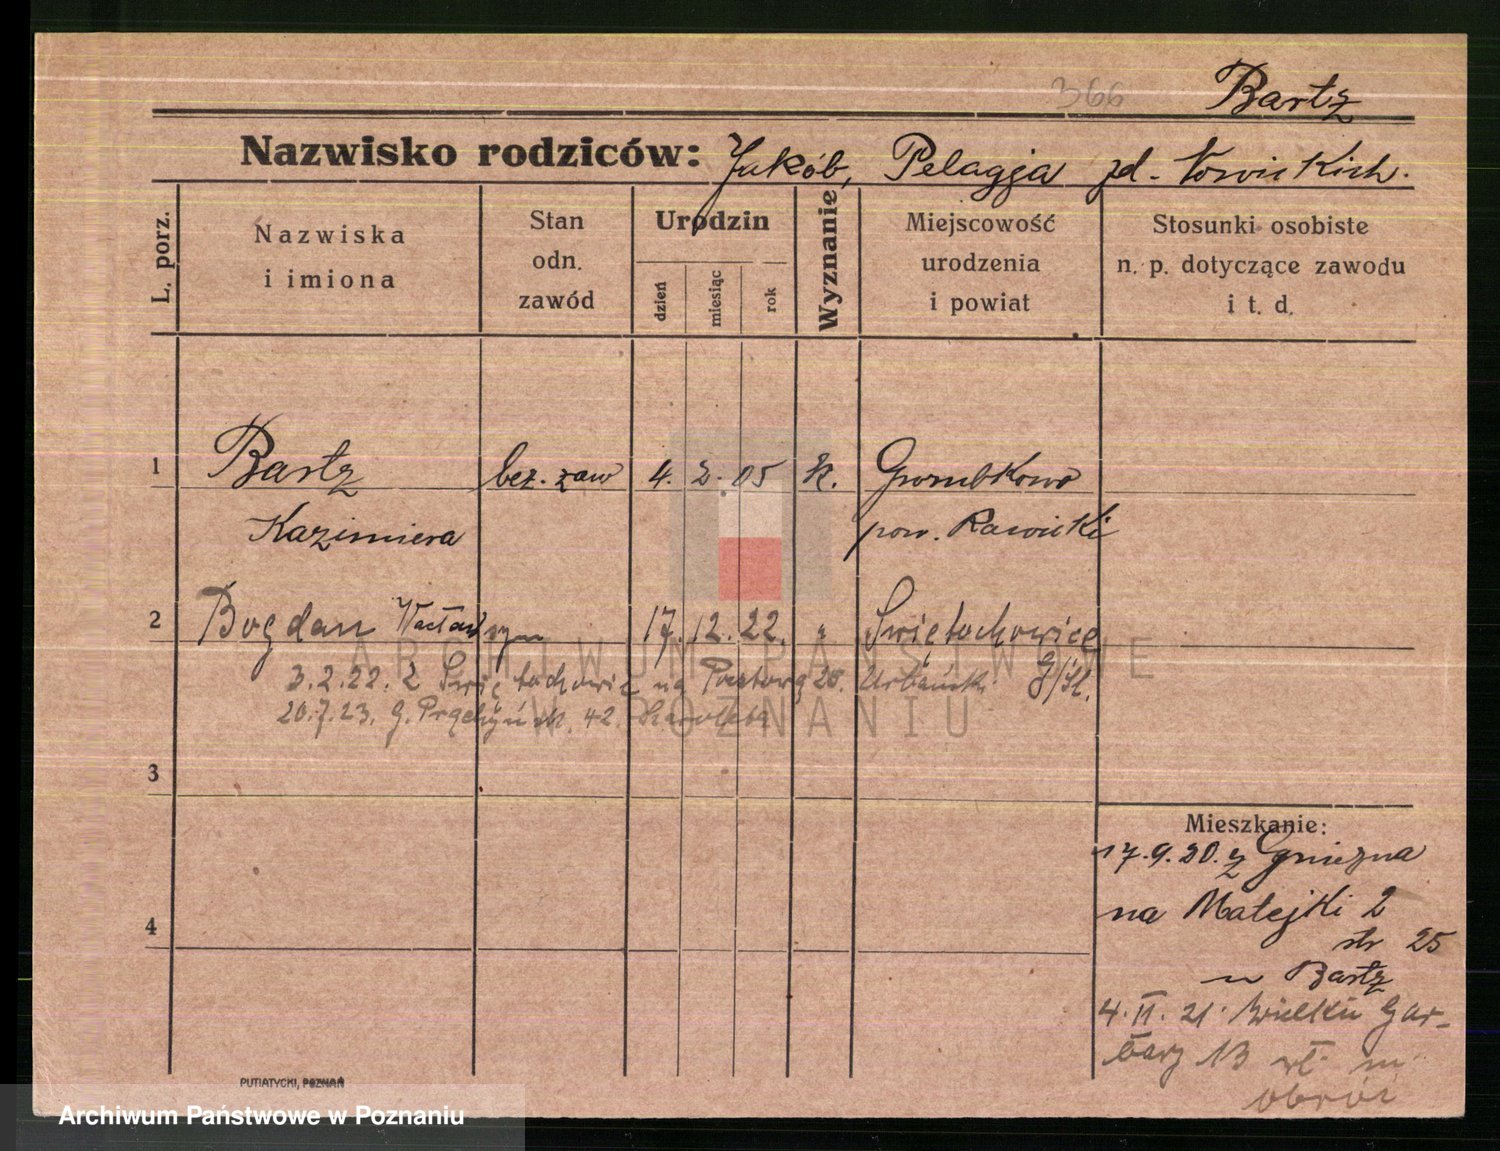 366
Bartz
Nazwisko rodziców: Jakób, Pelagja zd.
L. porz.
Nazwiska
i imiona
Stan
odn.
zawód
Urodzin
dzień
miesiąc
rok
Wyznanie
Miejscowość
urodzenia
i powiat
Stosunki osobiste
n. p. dotyczące zawodu
i t. d.
1
Bartz
bez. zaw
4. 2. 05
k.
Kazimiera
pow. Rawicki
2
Bogdan Wacław syn
17. 12. 22.
"
Świętochowice
3.2.22. z na 20. G/Śl.
20.7.23. G. 42.
3
Mieszkanie:
17.9.20. z Gniezna
na Matejki 2
4
str 25
u Bartz
4. II. 21. Wielkie Gar-
bary 13
PUTIATYCKI, POZNAŃ
ARCHIWUM PAŃSTWOWE
W POZNANIU
Archiwum Państwowe w Poznaniu